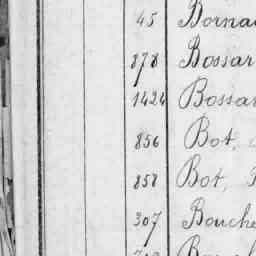 45 Borna
878 Bossar
1424 Bossar
856 Bot,
858 Bot,
307 Bouche